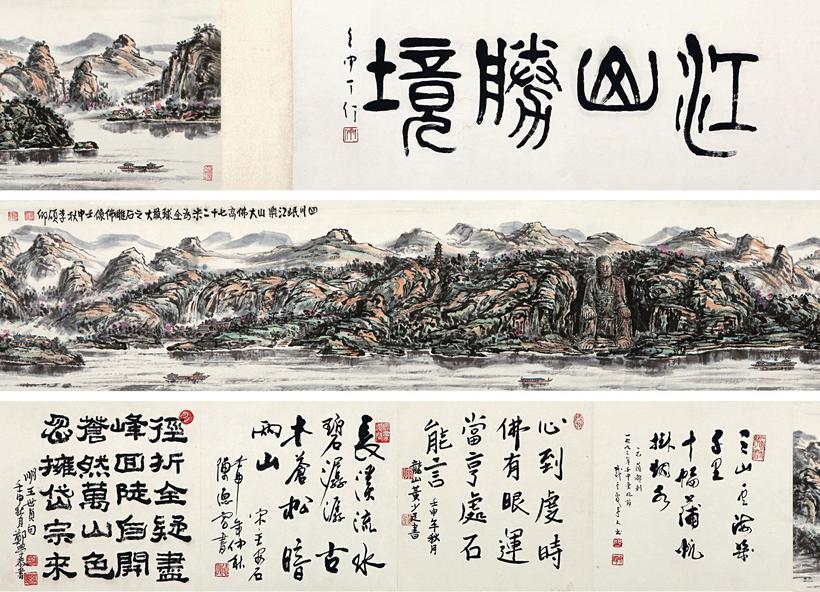 江山勝境
壬申
四川岷江樂山大佛高七十二米為全球最大之石雕佛像壬申秋李碩卿
三山雲海幾
千里
十幅蒲帆
掛烟水
元薩都剌
心到虔時
佛有眼運
當亨處石
能言
壬申年秋月
龍山黃少廷書
長溪流水
碧潺潺古
木蒼松暗
兩山
宋王安石
壬申年仲秋
徑折全疑盡
峰回陡自開
蒼然萬山色
忽擁岱宗來
明王世貞句
壬申秋月鄭